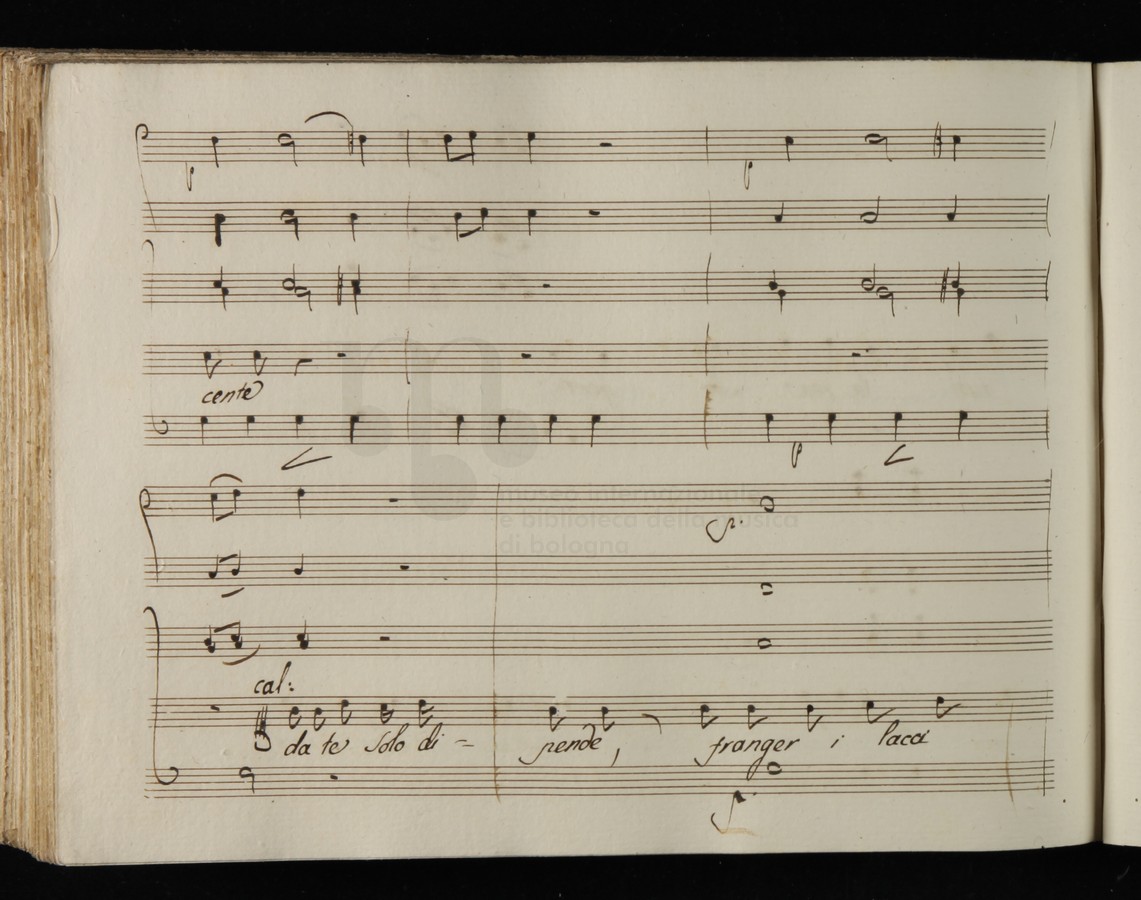 p p
cente
p
museo internazionale
e biblioteca della musica
di bologna
cal:
da te solo di = pende, franger i lacci